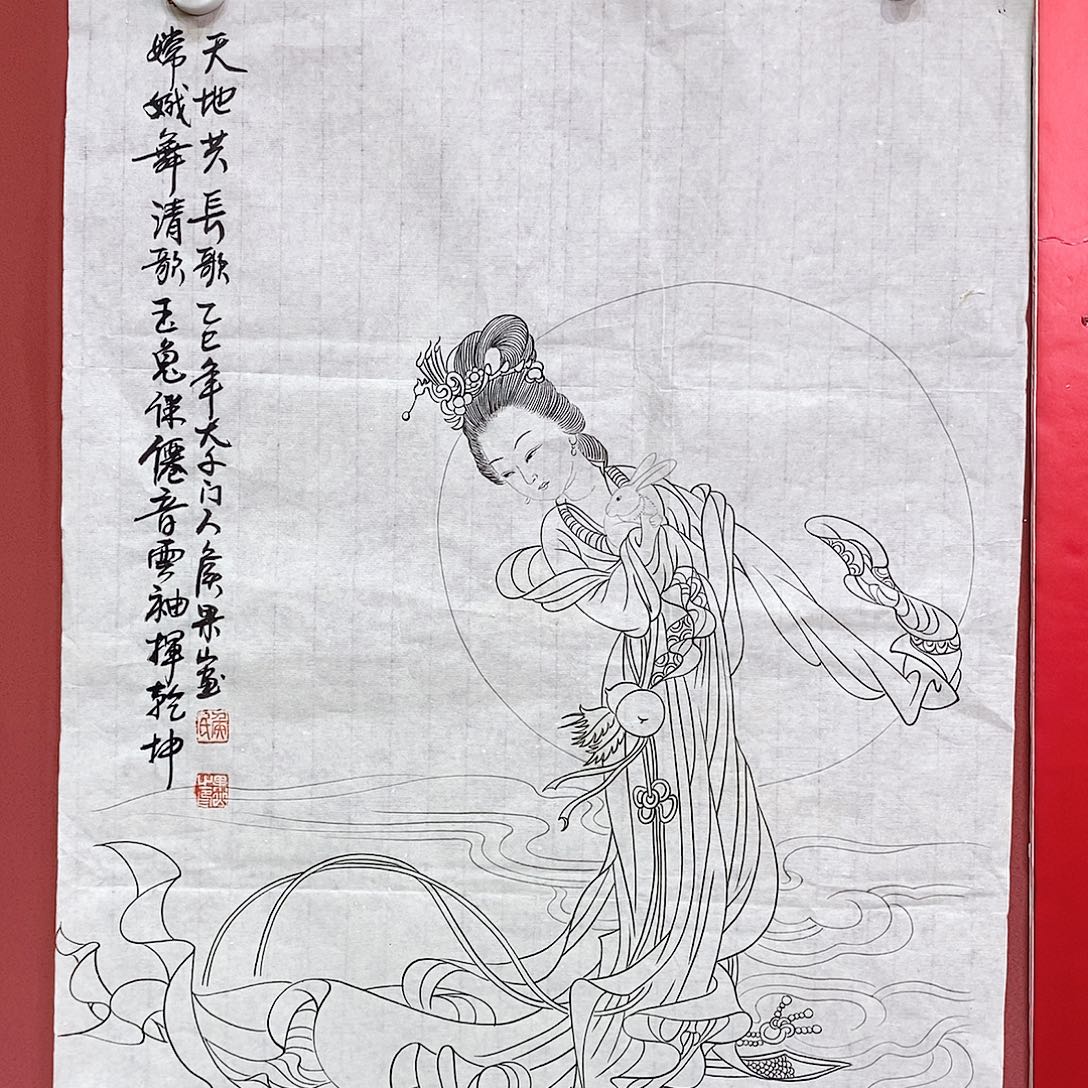 嫦娥舞清歌玉兔僊音雲袖揮乾坤
天地共長歌乙巳年大千门人侯果畫
侯氏